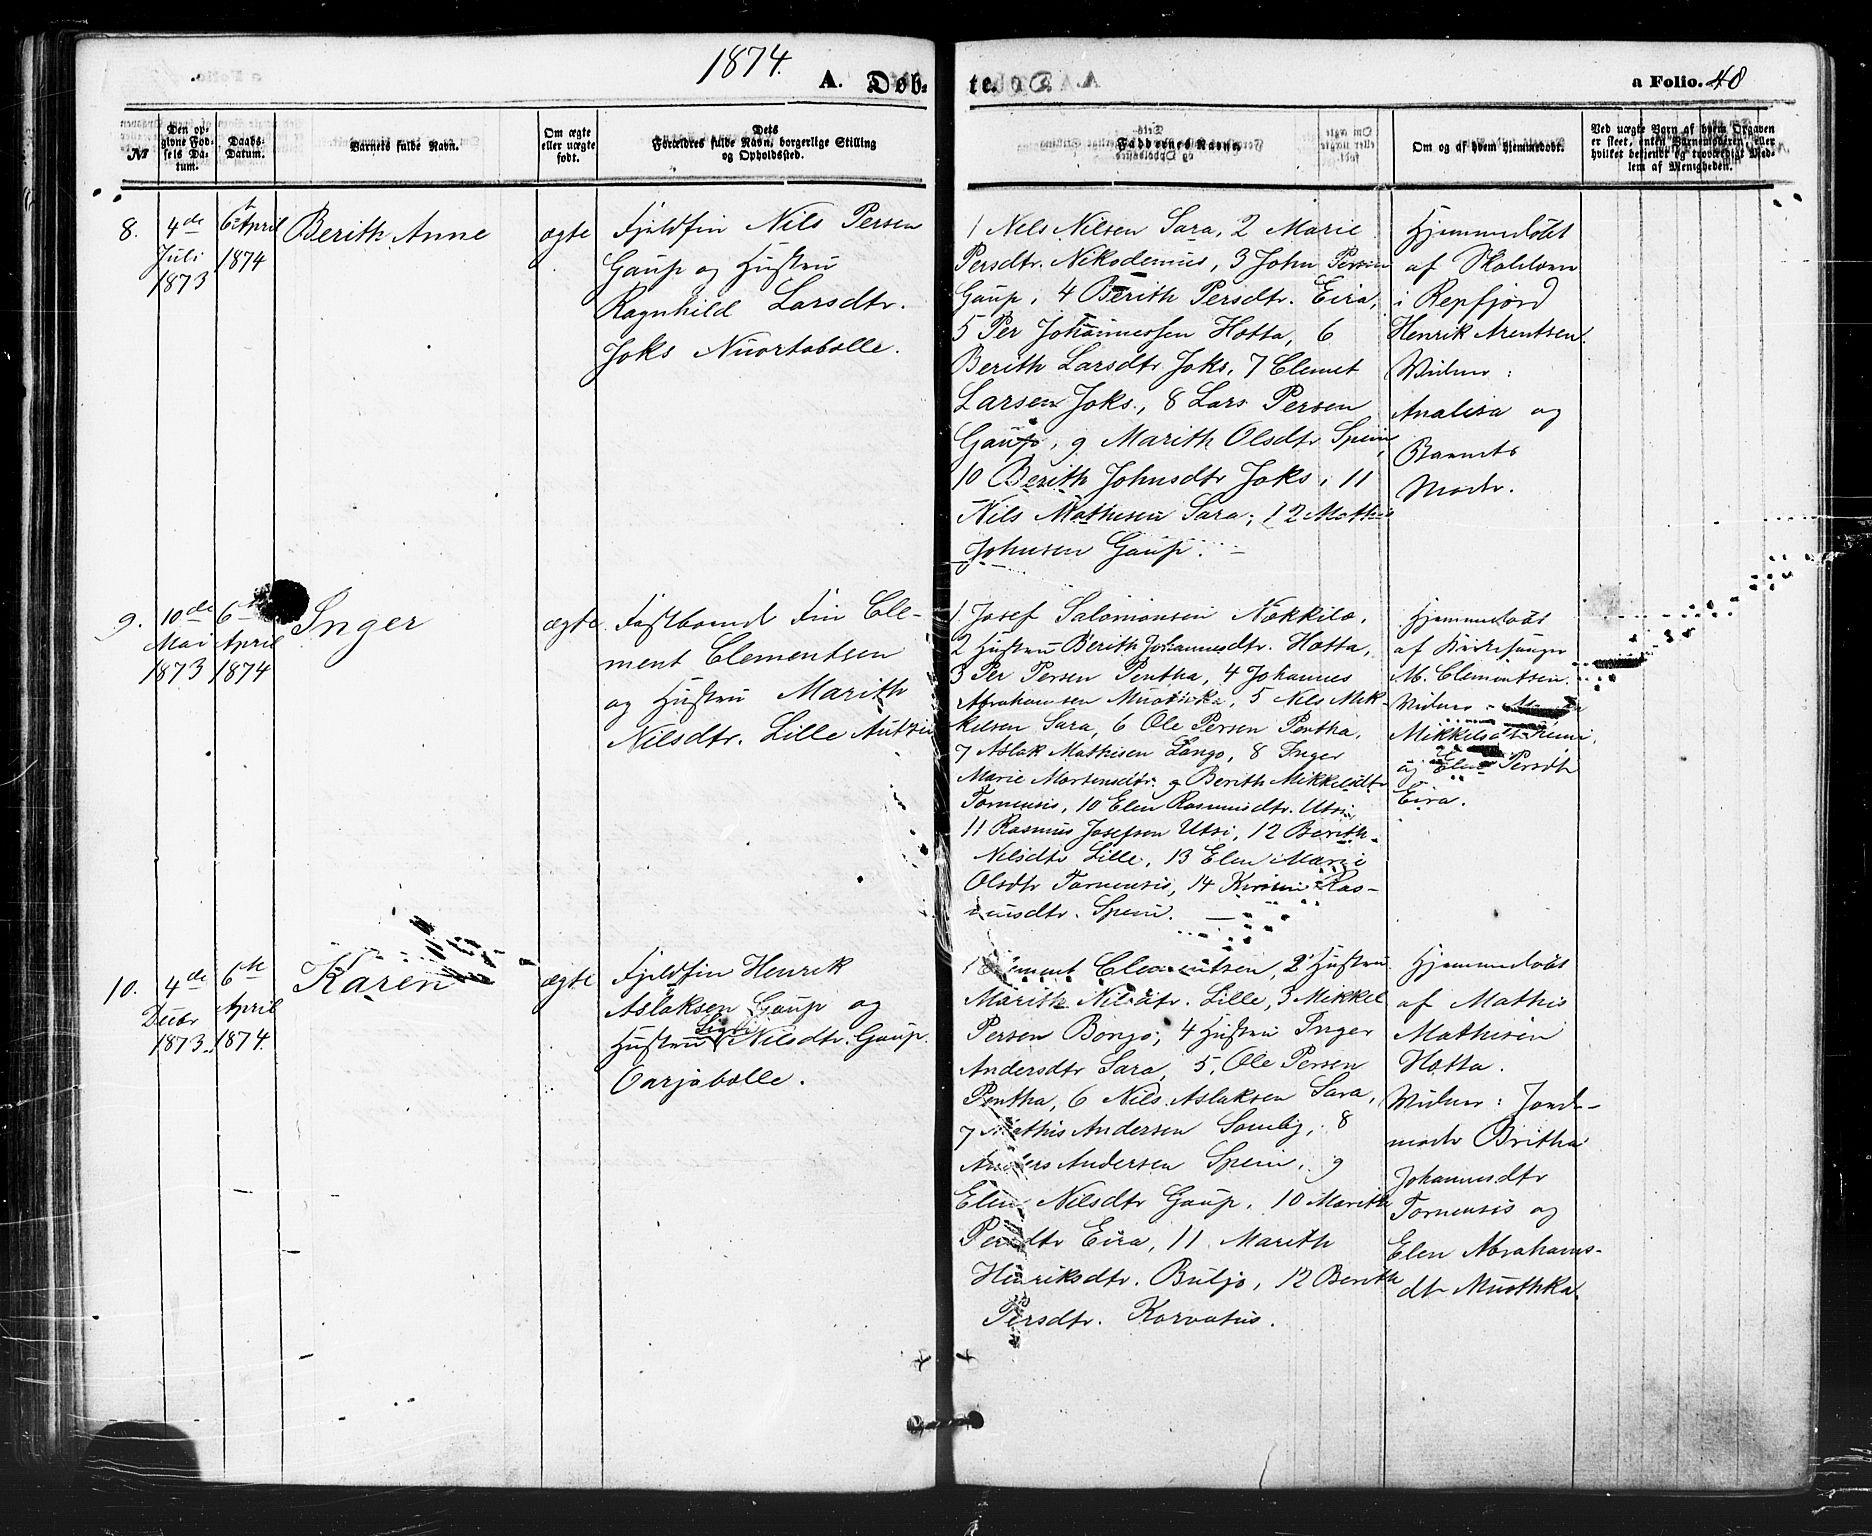 1874.
A. Døb-
te.
a Folio. 48
№
Den op-
givne Fød-
sels Da-
tum.
Daabs-
Datum.
Barnets fulde Navn.
Om ægte
eller uægte
født.
Dets
Forældres fulde Navn, borgerlige Stilling
og Opholdssted.
Faddernes Navn
Om og af hvem hjemmedøbt.
Ved uægte Barn af hvem Opgaven
er skeet, enten Barnefaderen eller
hvilket bekjendt og troværdigt Med-
lem af Menigheden.
8.
4de
Juli
1873
6te April
1874
Berith Anne
ægte
Fjeldfin Nils Persen
Gaup og Hustru
Ragnhild Larsdtr.
Joks Nuortabælle.
1 Nels Nilsen Sara, 2 Marie
Persdtr. Nikodemus, 3 John Persen
Gaup, 4 Berith Persdtr. Eira,
5 Per Johannessen Hætta, 6
Berith Larsdtr Joks, 7 Clemet
Larsen Joks, 8 Lars Persen
Gaup, 9 Marith Olsdtr Spein
10 Berith Johnsdtr Joks, 11
Nils Mathisen Sara, 12 Mathis
Johnsen Gaup. —
Hjemmedøbt
af Skolelærer
i Repfjord
Henrik Arentsen.
Vidner:
Analisa og
Barnets
Moder.
9.
10de
Mai
1873
6te
April
1874
Inger
ægte
Fastboende Fin Cle-
ment Clementsen
og Hustru Marith
Nilsdtr. Lille Autzi
1 Josef Salomonsen Nækkilæ,
2 Hustru Berith Johannesdtr. Hætta,
3 Per Persen Pentha, 4 Johannes
Abrahamsen Muotkka, 5 Nils Mik-
kelsen Sara, 6 Ole Persen Pentha,
7 Aslak Mathisen Lango, 8 Inger
Marie Mortensdtr. 9 Berith Mikkelsdtr
Tornensis, 10 Elen Rasmusdtr. Utsi,
11 Rasmus Josefsen Utsi, 12 Berith
Nilsdtr Lille, 13 Elen Marie
Olsdtr Tornensis, 14 Kirsten Ras-
musdtr. Spein. —
Hjemmedøbt
af Kirkesanger
M. Clementsen.
Vidner:
Mikkelsdtr
og Elen Persdtr
Eira.
10.
4de
Decbr
1873.
6te
April
1874.
Karen
ægte
Fjeldfin Henrik
Aslaksen Gaup og
Hustru Sigri Nilsdtr. Gaup.
Oarjabælle.
1 Clement Clementsen, 2 Hustru
Marith Nilsdtr. Lille, 3 Mikkel
Persen Bongo, 4 Hustru Inger
Andersdtr Sara, 5, Ole Persen
Pentha, 6 Nils Aslaksen Sara,
7 Mathis Andersen Somby, 8
Anders Andersen Spein, 9
Elen Nilsdtr Gaup, 10 Marith
Persdtr Eira, 11 Marith
Henriksdtr. Buljo, 12 Berith
Persdtr. Karvatus.
Hjemmedøbt
af Mathis
Mathisen
Hætta.
Vidner: Jord-
moder Britha
Johannesdtr
Tornensis og
Elen Abrahams-
dtr Muothka.